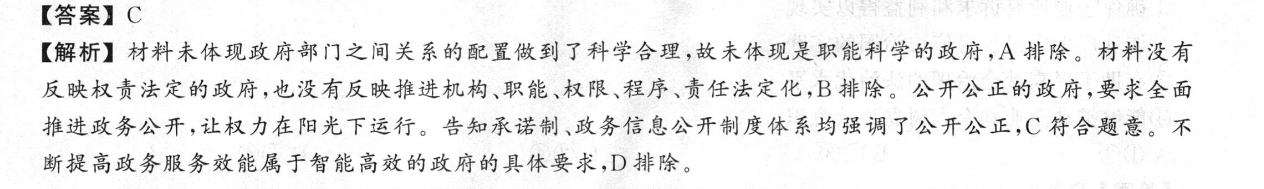 【答案】C
【解析】材料未体现政府部门之间关系的配置做到了科学合理,故未体现是职能科学的政府,A 排除。材料没有
反映权责法定的政府,也没有反映推进机构、职能、权限、程序、责任法定化,B 排除。公开公正的政府,要求全面
推进政务公开,让权力在阳光下运行。告知承诺制、政务信息公开制度体系均强调了公开公正,C 符合题意。不
断提高政务服务效能属于智能高效的政府的具体要求,D 排除。